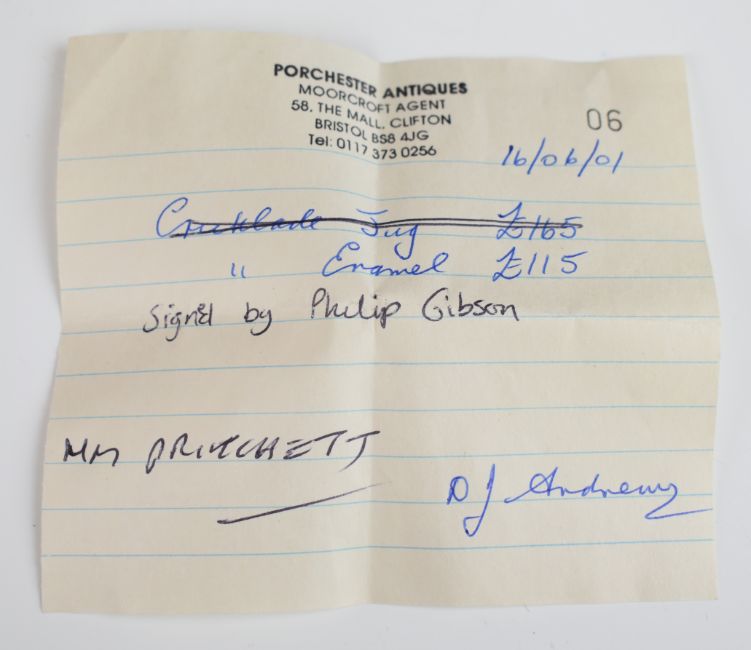 PORCHESTER ANTIQUES
MOORCROFT AGENT
58, THE MALL, CLIFTON
BRISTOL BS8 4JG
Tel: 0117 373 0256
06
16/06/01
Cricklade Jug £165
" Enamel £115
Signed by Philip Gibson
MM PRITCHETT
D J Andrews